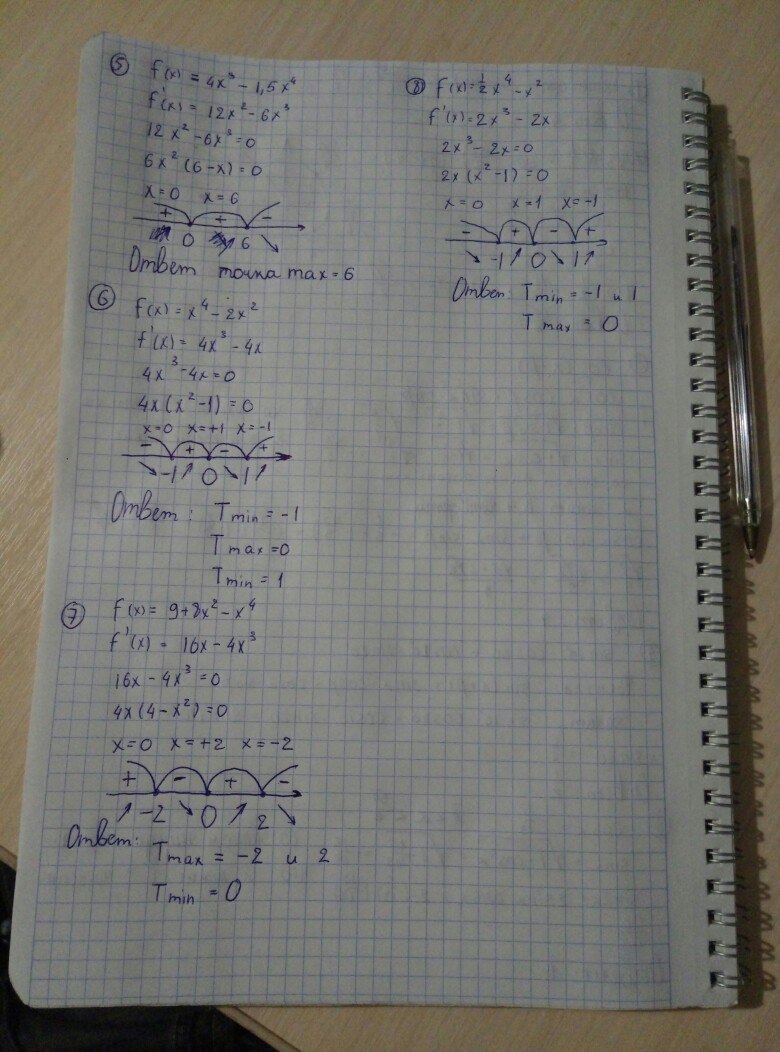 ⑤ f(x) = 4x³ - 1,5x⁴
f'(x) = 12x² - 6x³
12x² - 6x³ = 0
6x² (6-x) = 0
x=0 x=6
+ + -
0 6 ↘
Ответ точка max = 6
⑥ f(x) = x⁴ - 2x²
f'(x) = 4x³ - 4x
4x³ - 4x = 0
4x(x²-1) = 0
x=0 x=+1 x=-1
- + - +
↘ -1 ↗ 0 ↘ 1 ↗
Ответ: Tmin = -1
Tmax = 0
Tmin = 1
⑦ f(x) = 9+8x² - x⁴
f'(x) = 16x - 4x³
16x - 4x³ = 0
4x(4-x²) = 0
x=0 x=+2 x=-2
+ - + -
↗ -2 ↘ 0 ↗ 2 ↘
Ответ:
Tmax = -2 и 2
Tmin = 0
⑧ f(x) = ½x⁴ - x²
f'(x) = 2x³ - 2x
2x³ - 2x = 0
2x(x²-1) = 0
x=0 x=1 x=-1
- + - +
↘ -1 ↗ 0 ↘ 1 ↗
Ответ: Tmin = -1 и 1
Tmax = 0